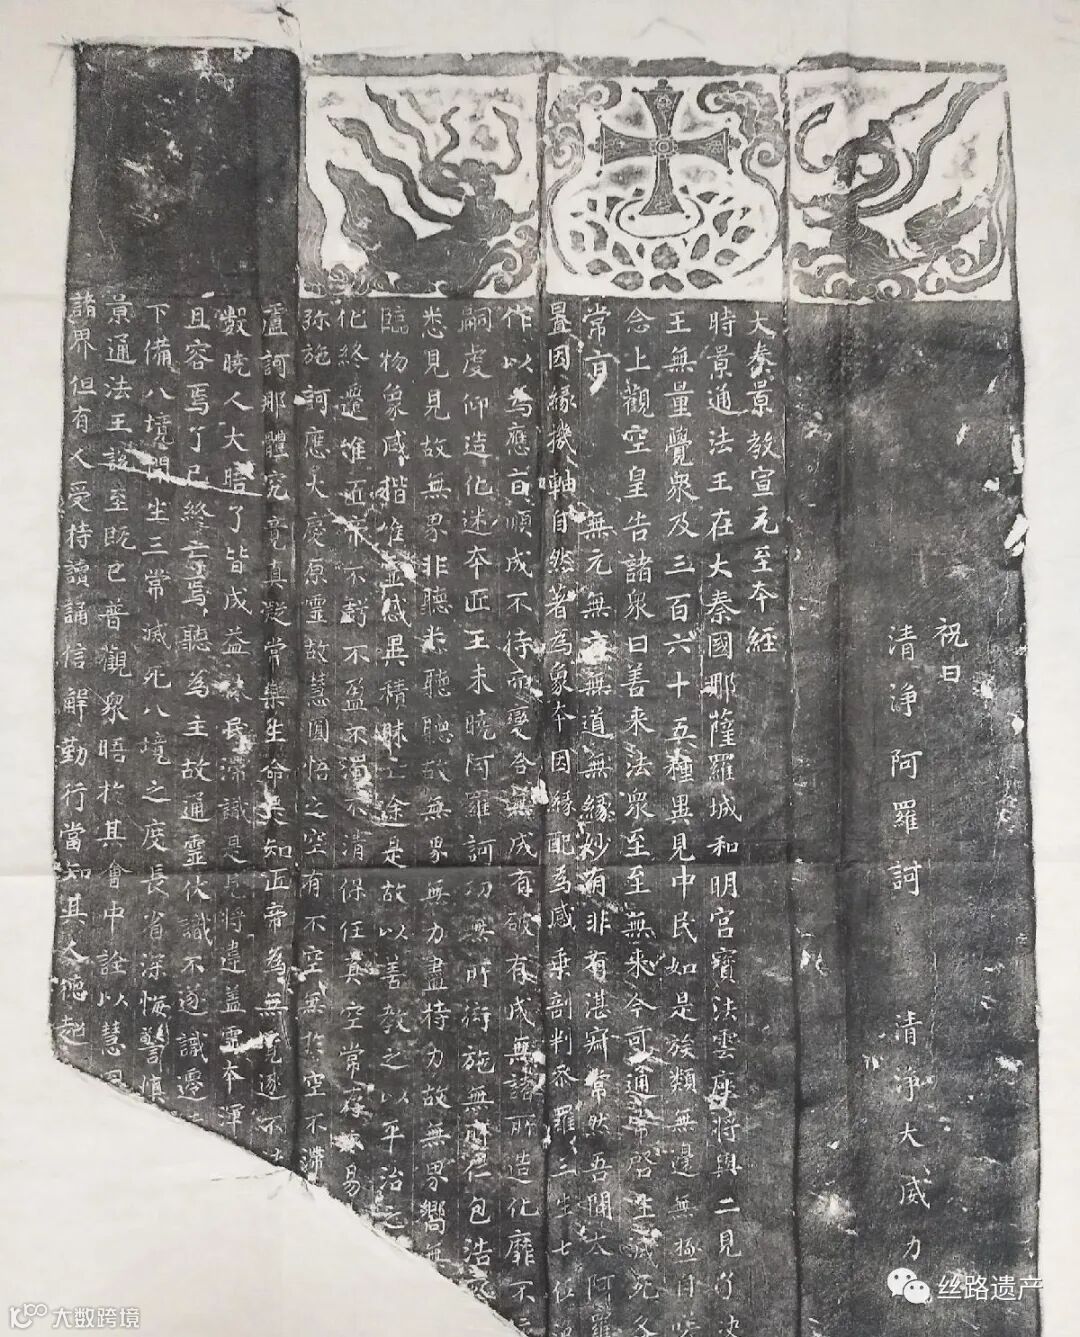 祝曰
清淨阿羅訶 清淨大威力
大秦景教宣元至本經
時景通法王在大秦國那薩羅城和明宮寶法雲座將與二見了決
王無量覺眾及三百六十五種異見中民如是族類無邊無極自
念上觀空皇告諸眾曰善來法眾至至無來今可通常啓生滅死各
常旨 無元無 無道無緣妙有非有湛寂常然吾聞太阿羅
置因緣機軸自然著為象本因緣配為感乘剖判參羅三生七位
作以為應旨順成不待而變合無成有破有成無諸所造化靡不
嗣虔仰造化迷本匠王未曉阿羅訶功無所衒施無所仁包浩
悉見見故無界非聽悉聽聽故無界無力盡持力故無界嚮無
臨物象咸楷唯 感異積昧亡途是故以善教之以平治之
化終遷唯匠帝不虧不盈不濁不清保任真空常存 易
弥施訶應大慶原靈故慧圓悟之空有不空無於空不滯
盧訶那體究竟真凝常樂生命是知匠帝為無竟逐不法
數曉人大晤了皆成益 民滯識是見將違蓋靈本渾
且容焉了已終亡焉聽為主故通靈伏識不遂識遷
下備八境開生三常滅死八境之度長省深悔警慎
景通法王說至既已普觀眾晤於其會中詮以慧
諸界但有人受持讀誦信解勤行當知其人德超
丝路遗产
大数跨境